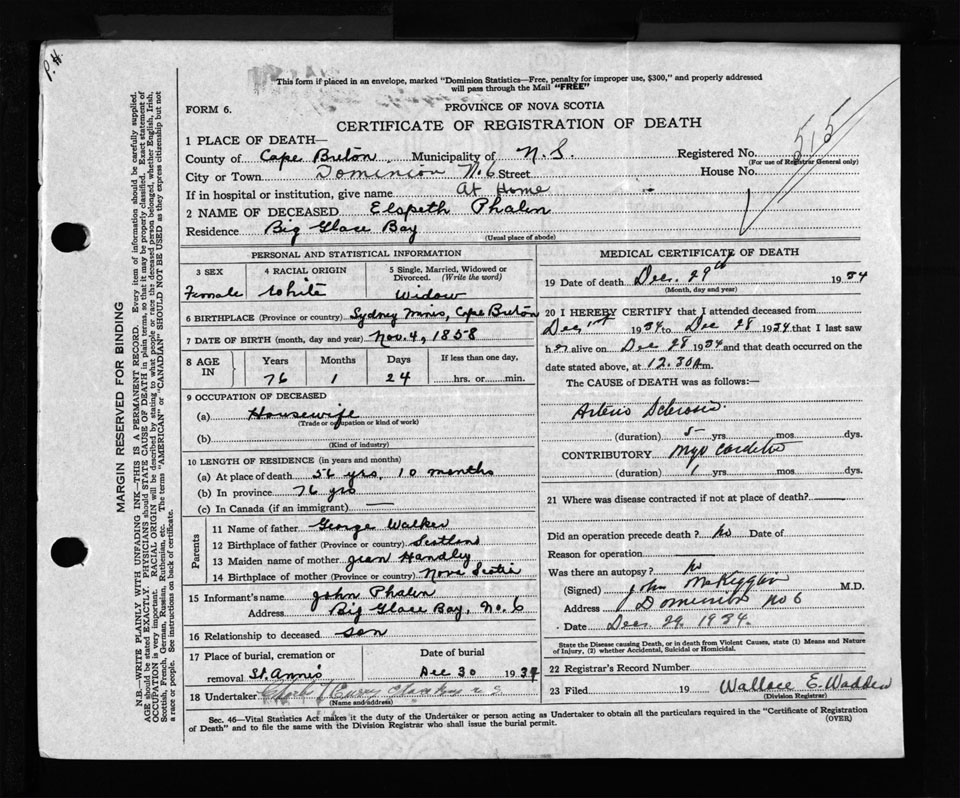 P.H.
This form if placed in an envelope, marked "Dominion Statistics—Free, penalty for improper use, $300," and properly addressed
will pass through the Mail "FREE"
FORM 6.
PROVINCE OF NOVA SCOTIA
CERTIFICATE OF REGISTRATION OF DEATH
515
1 PLACE OF DEATH—
County of Cape Breton Municipality of N.S. Registered No.
(For use of Registrar General only)
City or Town Dominion No. 6 Street House No.
If in hospital or institution, give name At Home
2 NAME OF DECEASED Elspeth Phalen
Residence Big Glace Bay
(Usual place of abode)
PERSONAL AND STATISTICAL INFORMATION
3 SEX 4 RACIAL ORIGIN 5 Single, Married, Widowed or
Divorced. (Write the word)
Female White Widow
6 BIRTHPLACE (Province or country) Sydney Mines, Cape Breton
7 DATE OF BIRTH (month, day and year) Nov. 4, 1858
8 AGE IN Years Months Days If less than one day,
76 1 24 hrs. or min.
9 OCCUPATION OF DECEASED
(a) Housewife
(Trade or occupation or kind of work)
(b)
(Kind of industry)
10 LENGTH OF RESIDENCE (in years and months)
(a) At place of death 56 yrs, 10 months
(b) In province 76 yrs
(c) In Canada (if an immigrant) —
Parents
11 Name of father George Walker
12 Birthplace of father (Province or country) Scotland
13 Maiden name of mother Jean Handley
14 Birthplace of mother (Province or country) Nova Scotia
15 Informant's name John Phalen
Address Big Glace Bay, No. 6
16 Relationship to deceased son
17 Place of burial, cremation or Date of burial
removal St. Anns Dec 30 1934
18 Undertaker Curry
(Name and address)
MEDICAL CERTIFICATE OF DEATH
19 Date of death Dec. 29th 1934
(Month, day and year)
20 I HEREBY CERTIFY that I attended deceased from
Dec 1st 1934 to Dec 28 1934 that I last saw
her alive on Dec 28 1934 and that death occurred on the
date stated above, at 12.30 Am.
The CAUSE of DEATH was as follows:—
Arterio Sclerosis
(duration) 5 yrs mos. dys.
CONTRIBUTORY Myo carditis
(duration) 1 yrs mos. dys.
21 Where was disease contracted if not at place of death?
Did an operation precede death? No Date of
Reason for operation —
Was there an autopsy? No
(Signed) John McKiggan M.D.
Address Dominion No 6
Date Dec. 29. 1934.
State the Disease causing Death, or in death from Violent Causes, state (1) Means and Nature
of Injury, (2) whether Accidental, Suicidal or Homicidal.
22 Registrar's Record Number
23 Filed 19 Wallace E. Wadden
(Division Registrar)
Sec. 46—Vital Statistics Act makes it the duty of the Undertaker or person acting as Undertaker to obtain all the particulars required in the "Certificate of Registration
of Death" and to file the same with the Division Registrar who shall issue the burial permit. (OVER)
MARGIN RESERVED FOR BINDING
N.B.—WRITE PLAINLY WITH UNFADING INK—THIS IS A PERMANENT RECORD. Every item of information should be carefully supplied.
AGE should be stated EXACTLY. PHYSICIANS should STATE CAUSE OF DEATH in plain terms, so that it may be properly classified. Exact statement of
OCCUPATION is very important. RACIAL ORIGIN will be described by stating to what people or race the deceased person belonged, whether English, Irish,
Scottish, French, German, Russian, Ruthenian, etc. The terms "AMERICAN" or "CANADIAN" SHOULD NOT BE USED as they express citizenship but not
a race or people. See instructions on back of certificate.